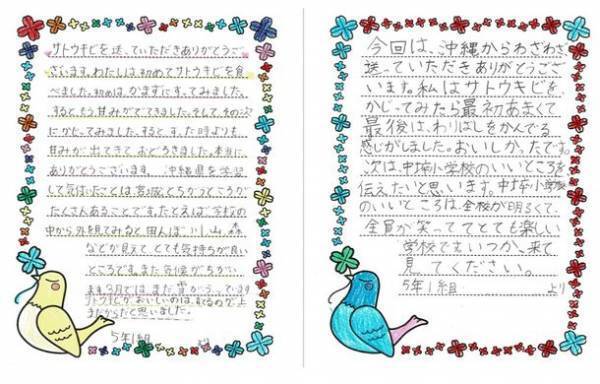 サトウキビを送っていただきありがとうご
ざいます。わたしは、初めてサトウキビを食
べました。初めは、かまずにすってみました。
するともう甘みがでてきました。そして、その次
にかじってみました。すると、すった時よりも
甘みが出てきて、おどろきました。本当に
ありがとうございます。沖縄県を学習
して気付いたことは、宮城とちがうところが
たくさんあることです。たとえば学校の
中から外を見てみると田んぼ、川、山、森
などが見えてとても気持ちが良い
ところです。また気候がちがい
ます。3月では、まだ雪がふっています
サトウキビが、おいしいのは、
まだからだと思いました。
5年1組 より
今回は、沖縄からわざわざ
送っていただきありがとうござ
います。私はサトウキビを
かじってみたら最初あまくて
最後は、わりばしをかんでる
感じがしました。おいしかったです。
次は、中埣小学校のいいところを
伝えたいと思います。中埣小学校
のいいところは、全校が明るくて、
全員が笑っててとても楽しい
学校です。いつか、来て
見てください。
5年1組 より